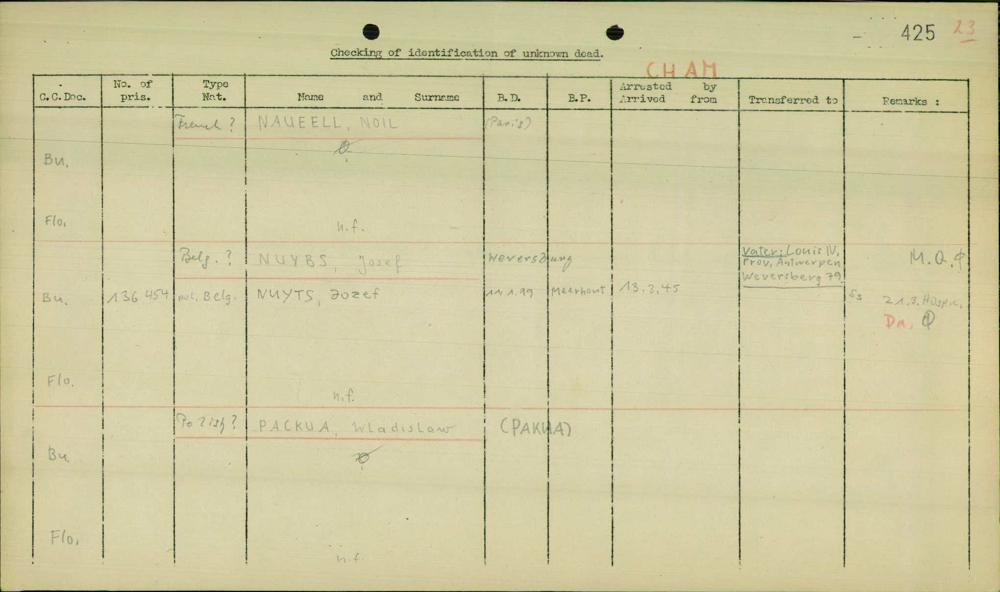 425 23
Checking of identification of unknown dead.
CHAM
C.C.Doc. No. of pris. Type Nat. Name and Surname B.D. B.P. Arrested by Arrived from Transferred to Remarks :
French ? NAUEELL, NOIL (Paris)
Bu.
Flo. n.f.
Belg. ? NUYBS, Jozef Weversburg Vater: Louis IV, Prov, Antwerpen Weversberg 79 M.Q.
Bu. 136 454 pol. Belg. NUYTS, Jozef Meerhout 13.2.45 Hospit.
Da.
Flo. n.f.
Polish? PACKUA, Wladislaw (PAKUA)
Bu.
Flo. n.f.